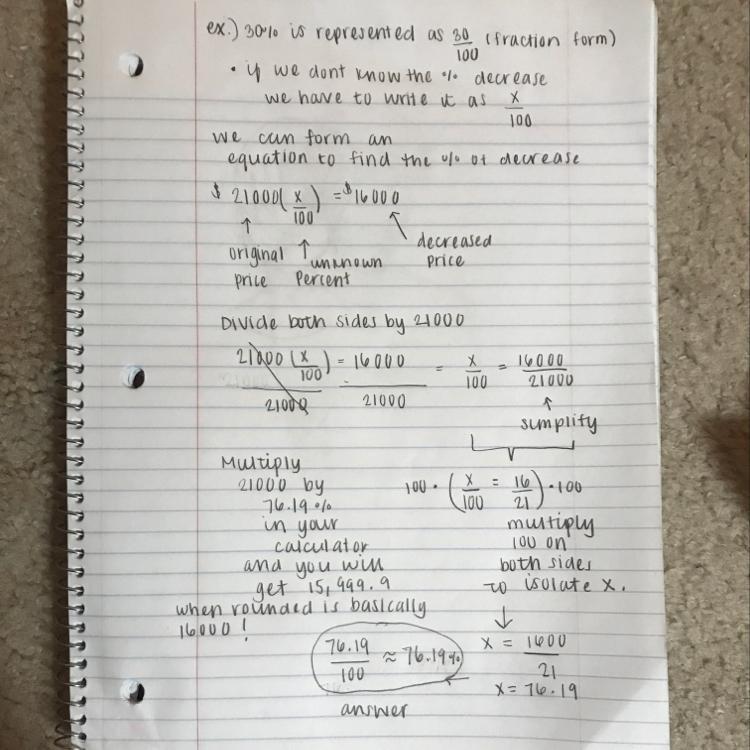 ex.) 30% is represented as 30/100 (fraction form)
• if we dont know the % decrease
we have to write it as x/100
we can form an
equation to find the % of decrease
$ 21000(x/100) = $16000
original price
unknown Percent
decreased price
Divide both sides by 21000
21000(x/100)/21000 = 16000/21000 = x/100 = 16000/21000
simplify
100 · (x/100 = 16/21) · 100
multiply
100 on
both sides
to isolate x.
Multiply
21000 by
76.19%
in your
calculator
and you will
get 15,999.9
when rounded is basically
16000!
x = 1600/21
x = 76.19
76.19/100 ≈ 76.19%
answer